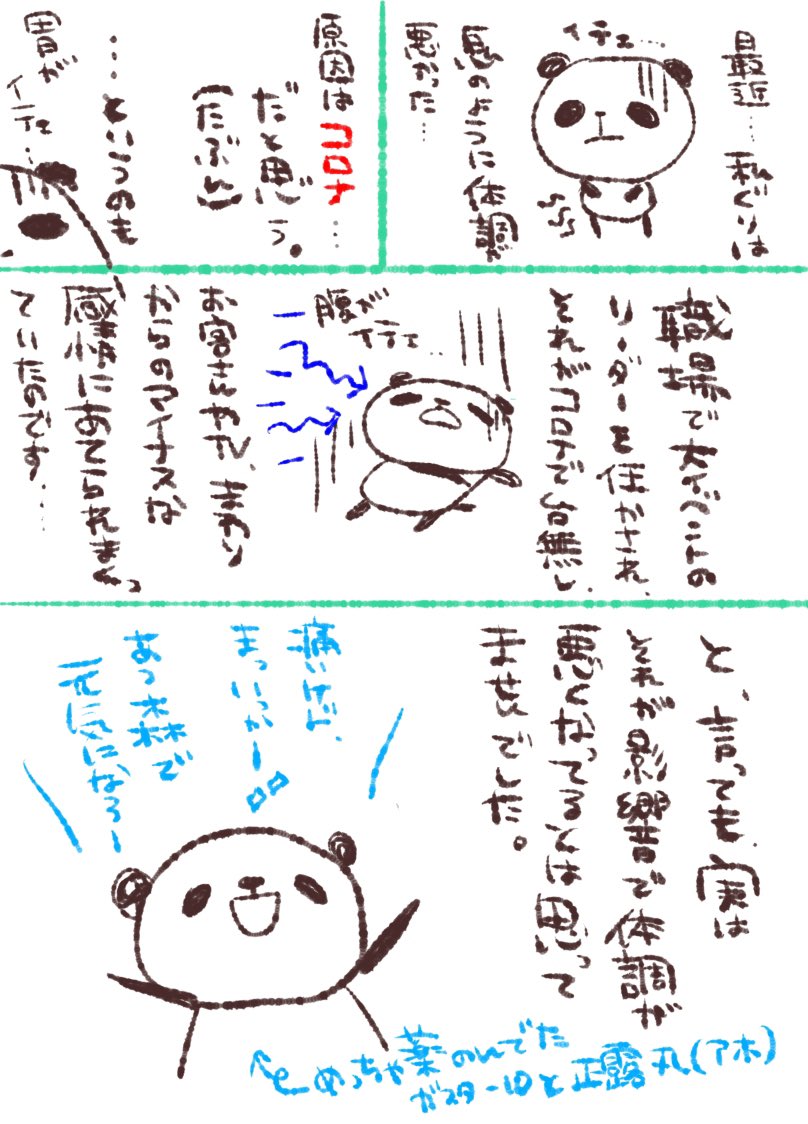 最近…私ぐりは
イテェ…
悪のように体調が
悪かった…
原因はコロナ…
だと思う。
(たぶん)
…というのも
胃が
イテェ…
職場で大イベントの
リーダーを任かされ、
それがコロナで台無し、
腹が
イテェ…
お客さんやTV、まわり
からのマイナスな
感情にあてられまくっ
ていたのです…
と、言っても、実は
それが影響で体調が
悪くなってるとは思って
ませんでした。
痛いけど、
まっいっかー♪
あつ森で
元気になろー
めっちゃ薬のんでた
ガスター10と正露丸(アホ)